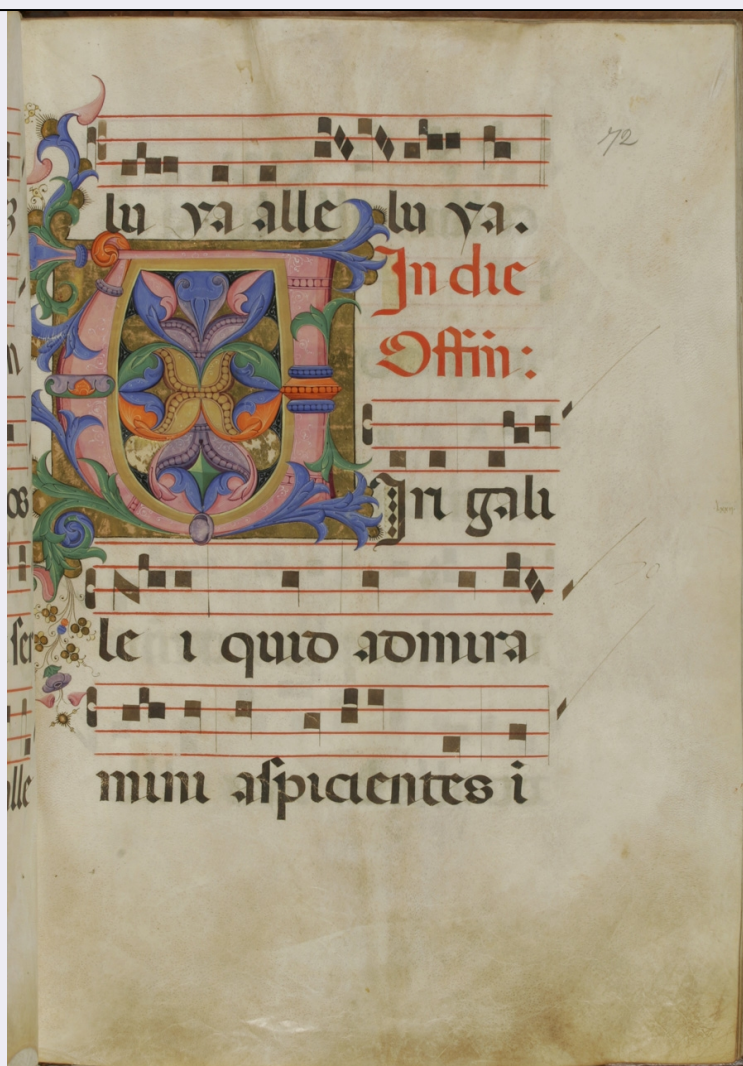 72
lu ya alle lu ya.
In die
Offin:
Iri gali
le i quid admira
mini aspicientes i